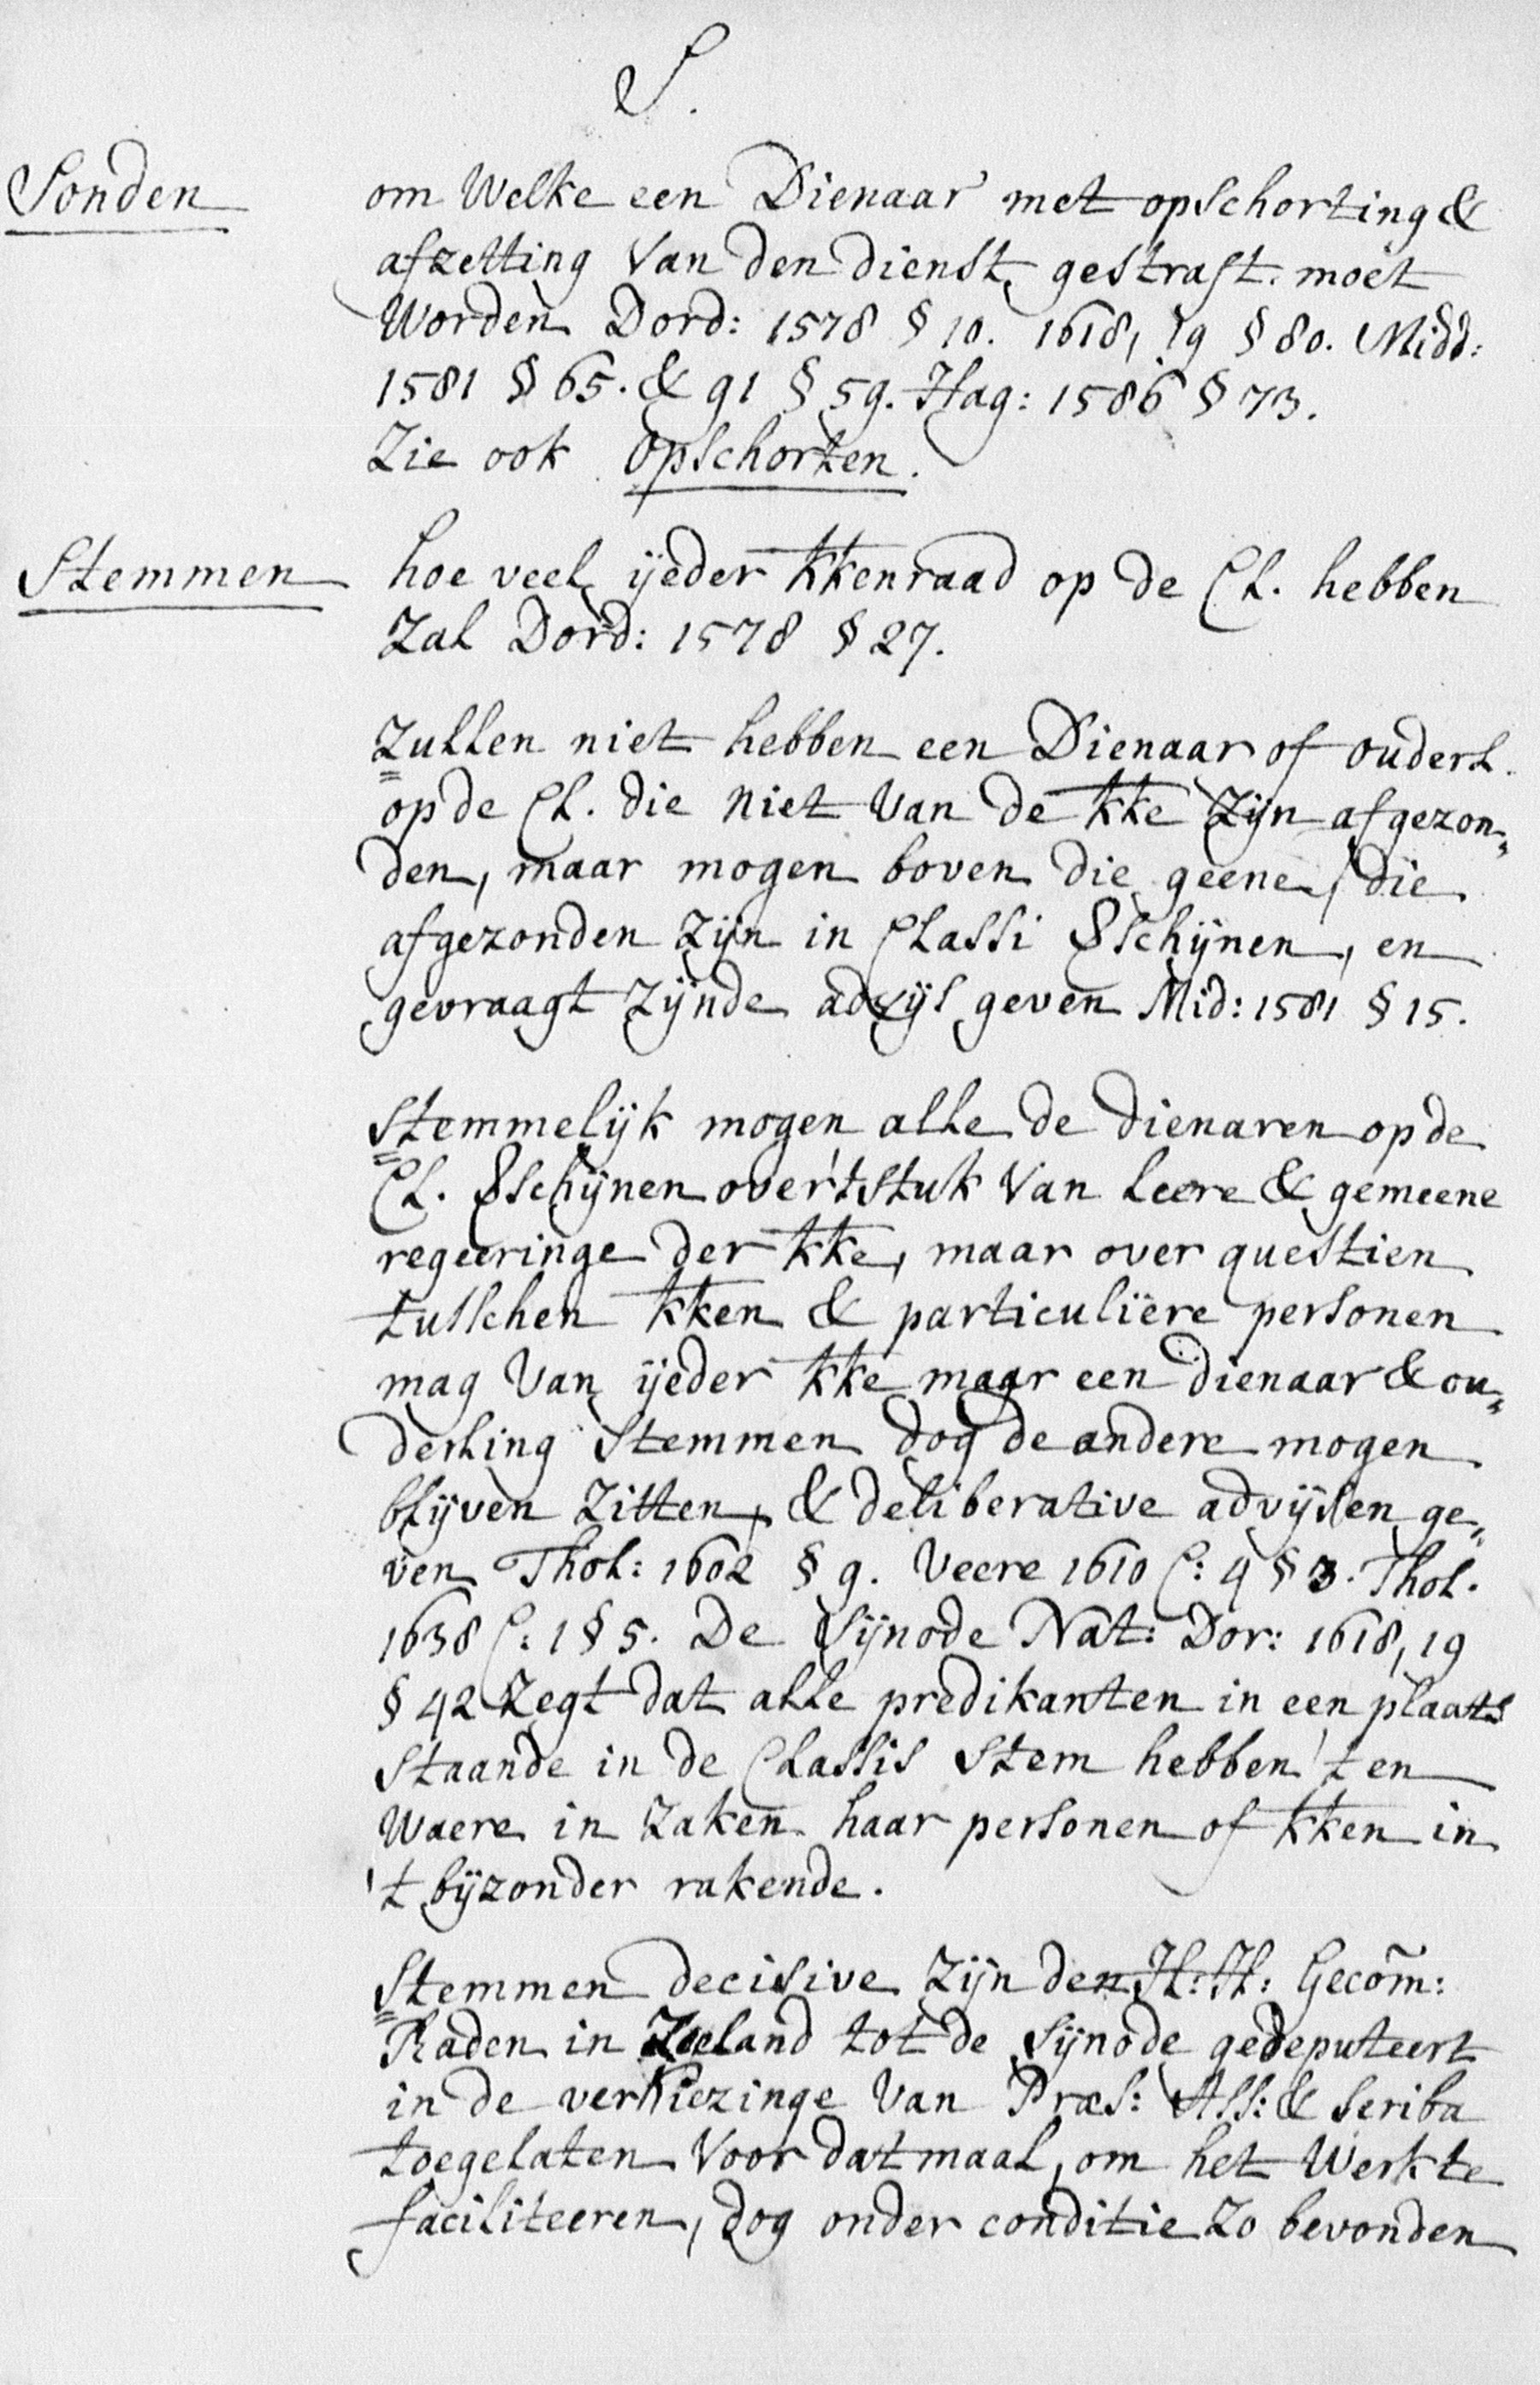 S.
Sonden om Welke een Dienaar met opschorting &
afzetting van den dienst gestraft moet
Worden Dord: 1578 § 10. 1618, 19 § 80. Midd:
1581 § 65. & 91 § 59. Hag: 1586 § 73.
Zie ook Opschorten.
Stemmen hoe veel ijeder kkenraad op de Cl. hebben
Zal Dord: 1578 § 27.
Zullen niet hebben een Dienaar of ouderl.
op de Cl. die niet van de kke zijn afgezon„
den, maar mogen boven die geene, die
afgezonden zijn in Classi Sschijnen, en
gevraagt zijnde advijs geven Mid: 1581 § 15.
Stemmelijk mogen alle de dienaren op de
Cl. Sschijnen over 't stuk van leere & gemeene
regeeringe der kke, maar over questien
tusschen kken & particuliere personen
mag van ijeder kke maar een dienaar & ou„
derling stemmen dog de andere mogen
blijven zitten, & deliberative advijsen ge„
ven Thol: 1602 § 9. Veere 1610 C: 4 § 3. Thol.
1638 C: 1 § 5. De Sijnode Nat: Dor: 1618, 19
§ 42 zegt dat alle predikanten in een plaats
staande in de Classis stem hebben 't en
Waere in zaken haar personen of kken in
't bijzonder rakende.
Stemmen decisive zijn den H: H: Gecom̃:
Raden in Zeeland tot de Sijnode gedeputeert
in de verkiezinge van Præs: Ass: & scriba
toegelaten voor dat maal, om het Werk te
faciliteeren, dog onder conditie zo bevonden